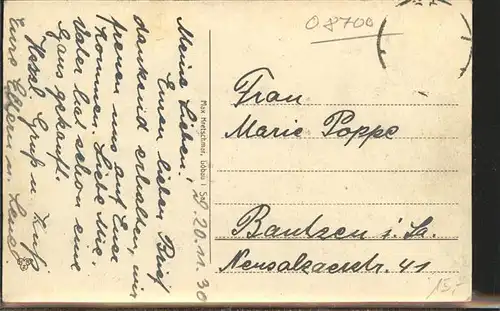 O 8700
Meine Lieben, d. 20.11.30
Euren lieben Brief
dankend erhalten, wir
freuen uns auf Euer
Kommen. Liebe Mie.
Vater hat schon eine
Gans gekauft.
Herzl. Gruß u. Kuß
Eure Eltern u. Lene
Max Kretschmar, Löbau i. Sa.
Frau
Marie Poppe
Bautzen i. Sa.
Nersalzaerstr. 41
15,-